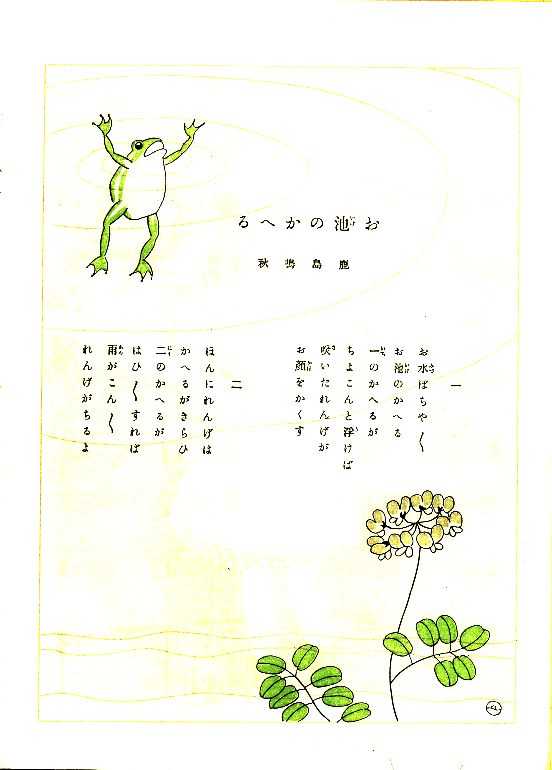 お池のかへる
鹿島鳴秋
一
お水ばちや〱
お池のかへる
一のかへるが
ちよこんと浮けば
咲いたれんげが
お顔をかくす
二
ほんにれんげは
かへるがきらひ
二のかへるが
はひ〱すれば
雨がこん〱
れんげがちるよ